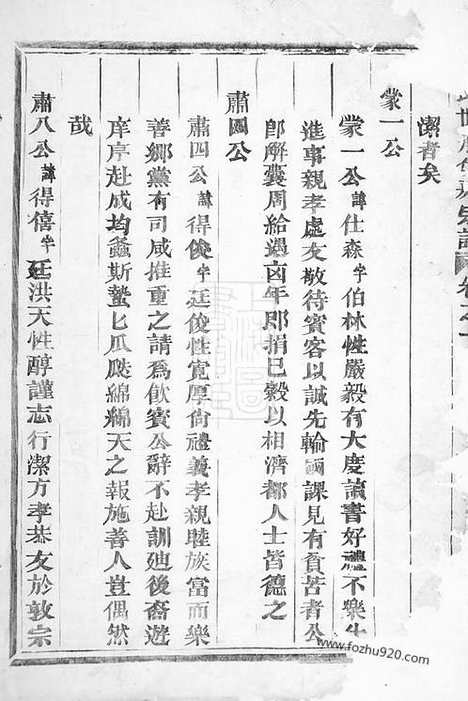 潔者矣
蒙一公
蒙一公諱仕森字伯林性嚴毅有大度讀書好禮不樂仕
進事親孝處友敬待賓客以誠先輸國課見有貧苦者公
卽解囊周給遇凶年卽捐已穀以相濟都人士皆德之
肅四公
肅四公諱得俊字廷俊性寬厚尙禮義孝親睦族富而樂
善鄉黨有司咸推重之請爲飮賓公辭不赴訓廸後裔遊
庠序赴成均螽斯蟄匕瓜瓞綿綿天之報施善人豈偶然
哉
肅八公諱得僖字廷洪天性醇謹志行潔方孝恭友於敦宗
www.fozhu920.com